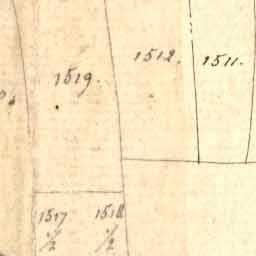 1519.
1512.
1511.
1517
1/2
1518
1/2